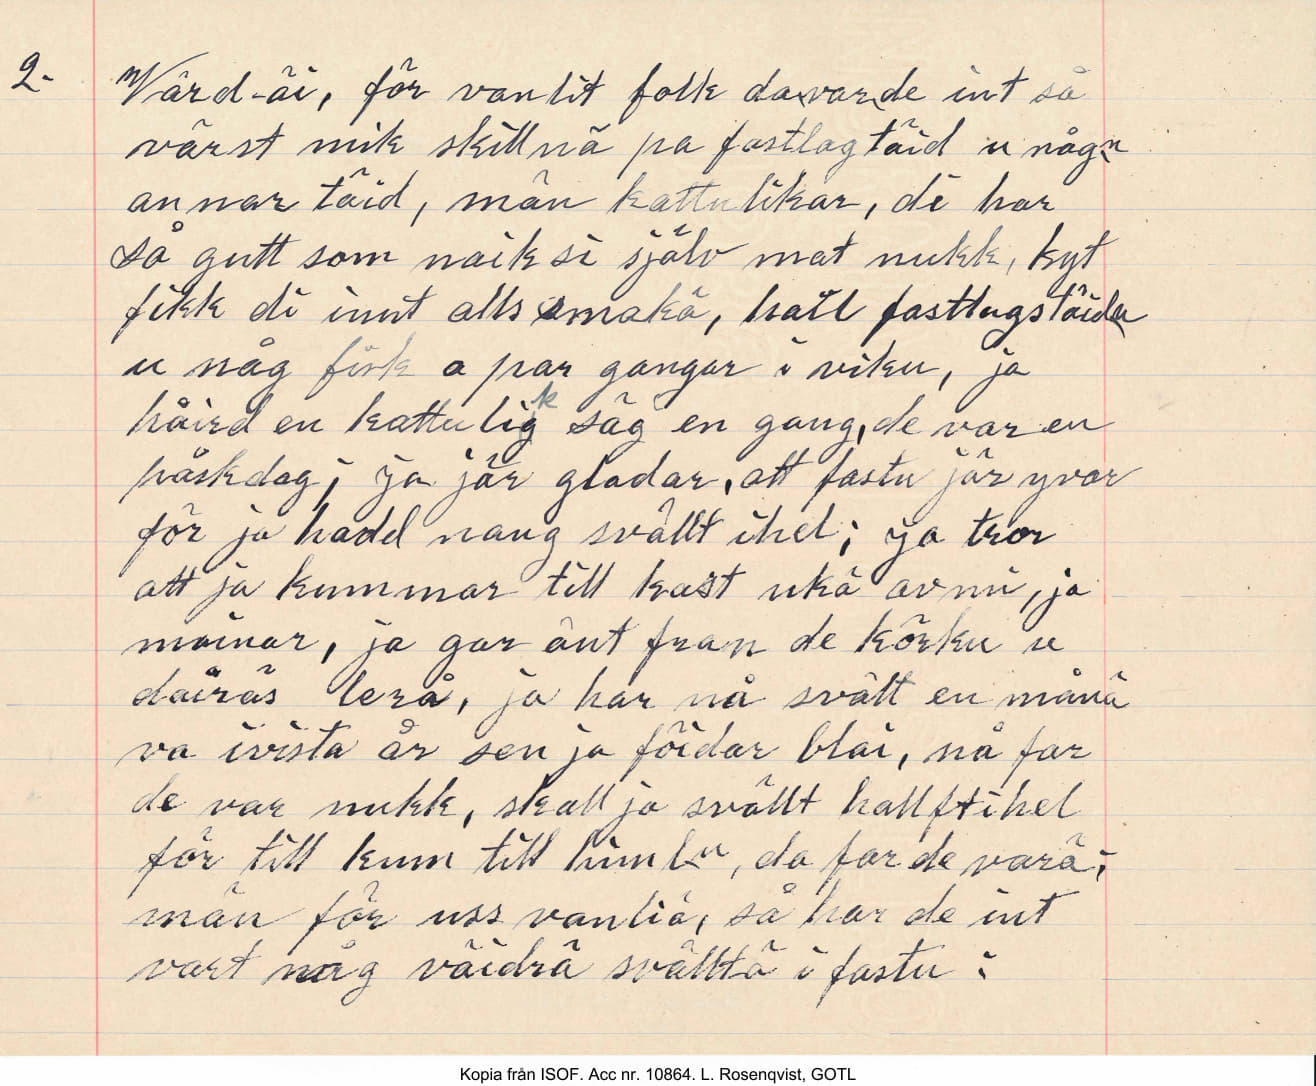 2. Värd-äi, för vanlit folk da var de int så
värst mik skillnä pa fastlagtäid u någn
annar täid, män kattulikar, di har
så gutt som naik si själv mat nukk, kyt
fikk di innt alls smakä, hail fastlagstäidn
u någ fisk a par gangar i viku, ja
håird en kattulik säg en gang, de var en
påskdag; ja jär gladar, att fastu jär yvar
för ja hadd naug svällt ihel; ja tror
att ja kummar till kast ukä av mi, ja
mainar, ja gar änt fran de körku u
dairäs lerå, ja har nå svält en månä
va ivista år sen ja föidar blai, nå far
de var nukk, skall ja svällt hallft ihel
för till kum till himln, da far de varä;
män för uss vanliä, så har de int
vart någ väidrä svälltä i fastu;
Kopia från ISOF. Acc nr. 10864. L. Rosenqvist, GOTL